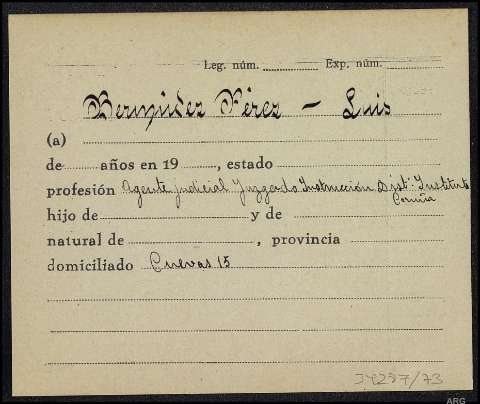 Leg. núm. Exp. núm.
Bermúdez Pérez - Luis
(a)
de años en 19 , estado
profesión Agente Judicial Juzgado Instrucción Distº Instituto
Coruña
hijo de y de
natural de , provincia
domiciliado Cuevas 15
34297/73
ARG